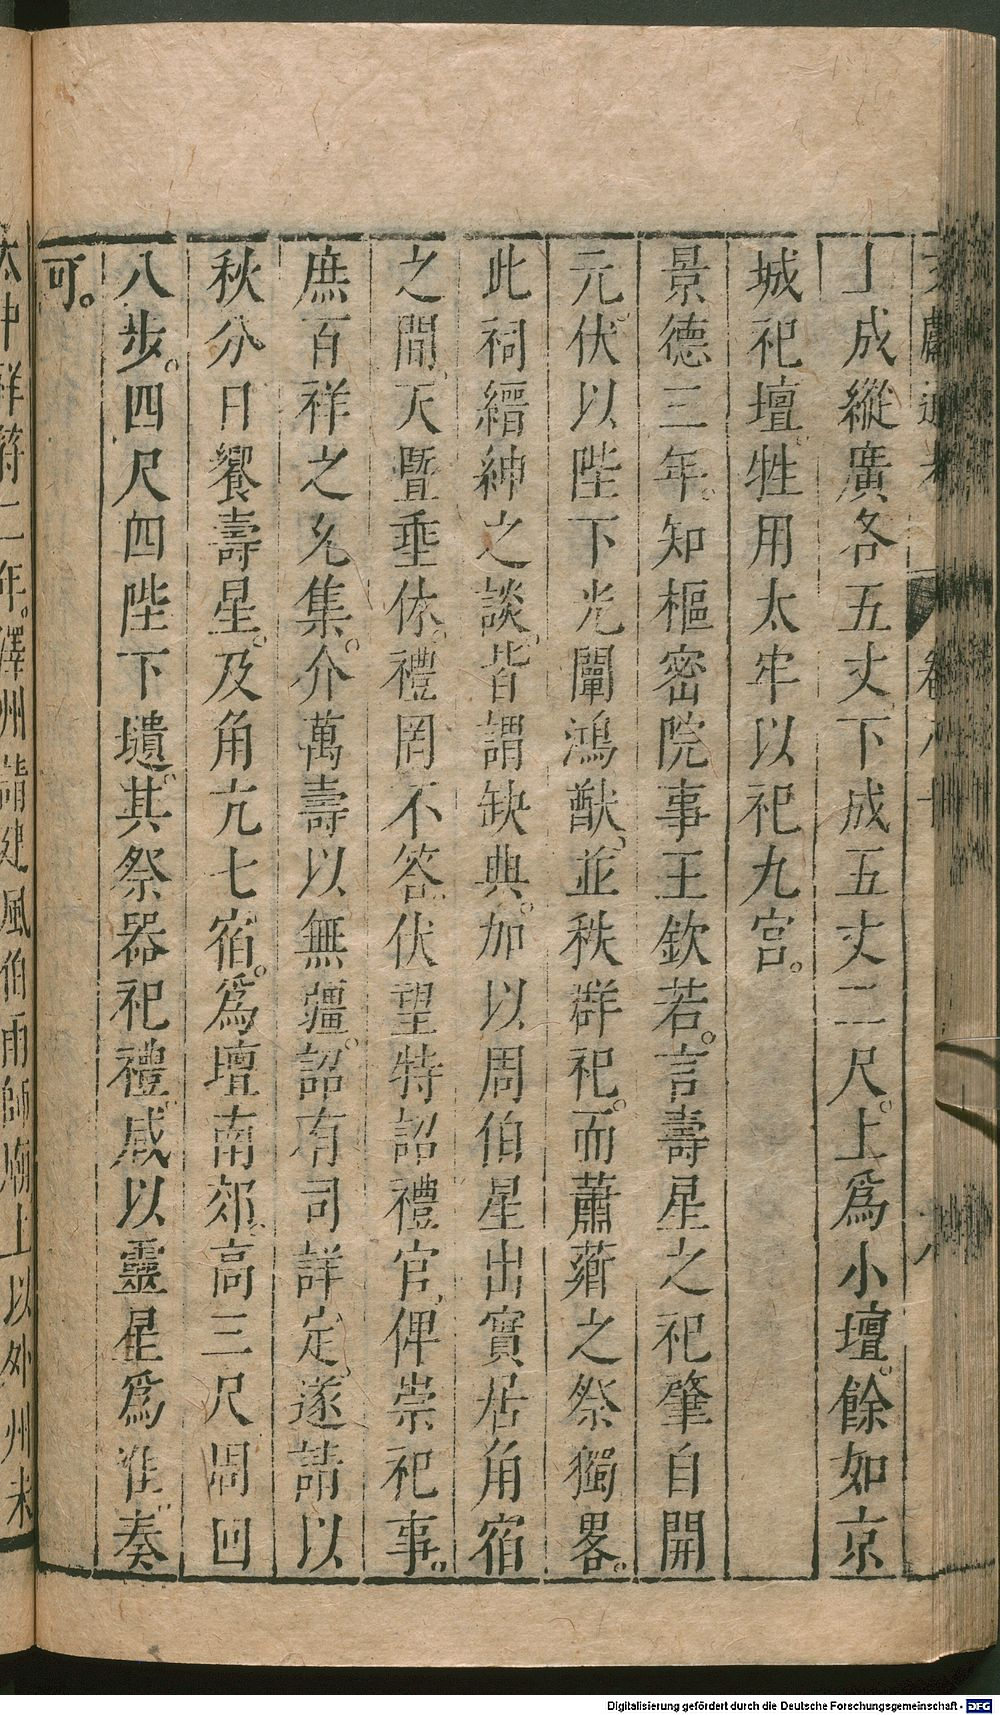 文獻通考 卷八十 八
丁成縱廣各五丈下成五丈二尺。上爲小壇。餘如京
城祀壇。牲用太牢以祀九宮。
景德三年。知樞密院事王欽若。言壽星之祀肇自開
元。伏以陛下光闡鴻猷、並秩群祀。而蕭薌之祭獨畧。
此祠縉紳之談。皆謂缺典。加以周伯星出實居角宿
之間、天暨垂休。禮罔不答。伏望特詔禮官、俾崇祀事。
庶百祥之允集。介萬壽以無疆。詔有司詳定、遂請以
秋分日饗壽星。及角亢七宿。爲壇南郊、高三尺周囬
八步。四尺四陛下壝。其祭器祀禮。咸以靈星爲准。奏
可。
太中祥符二年。澤州請建風伯雨師廟上以外州未
Digitalisierung gefördert durch die Deutsche Forschungsgemeinschaft - DFG